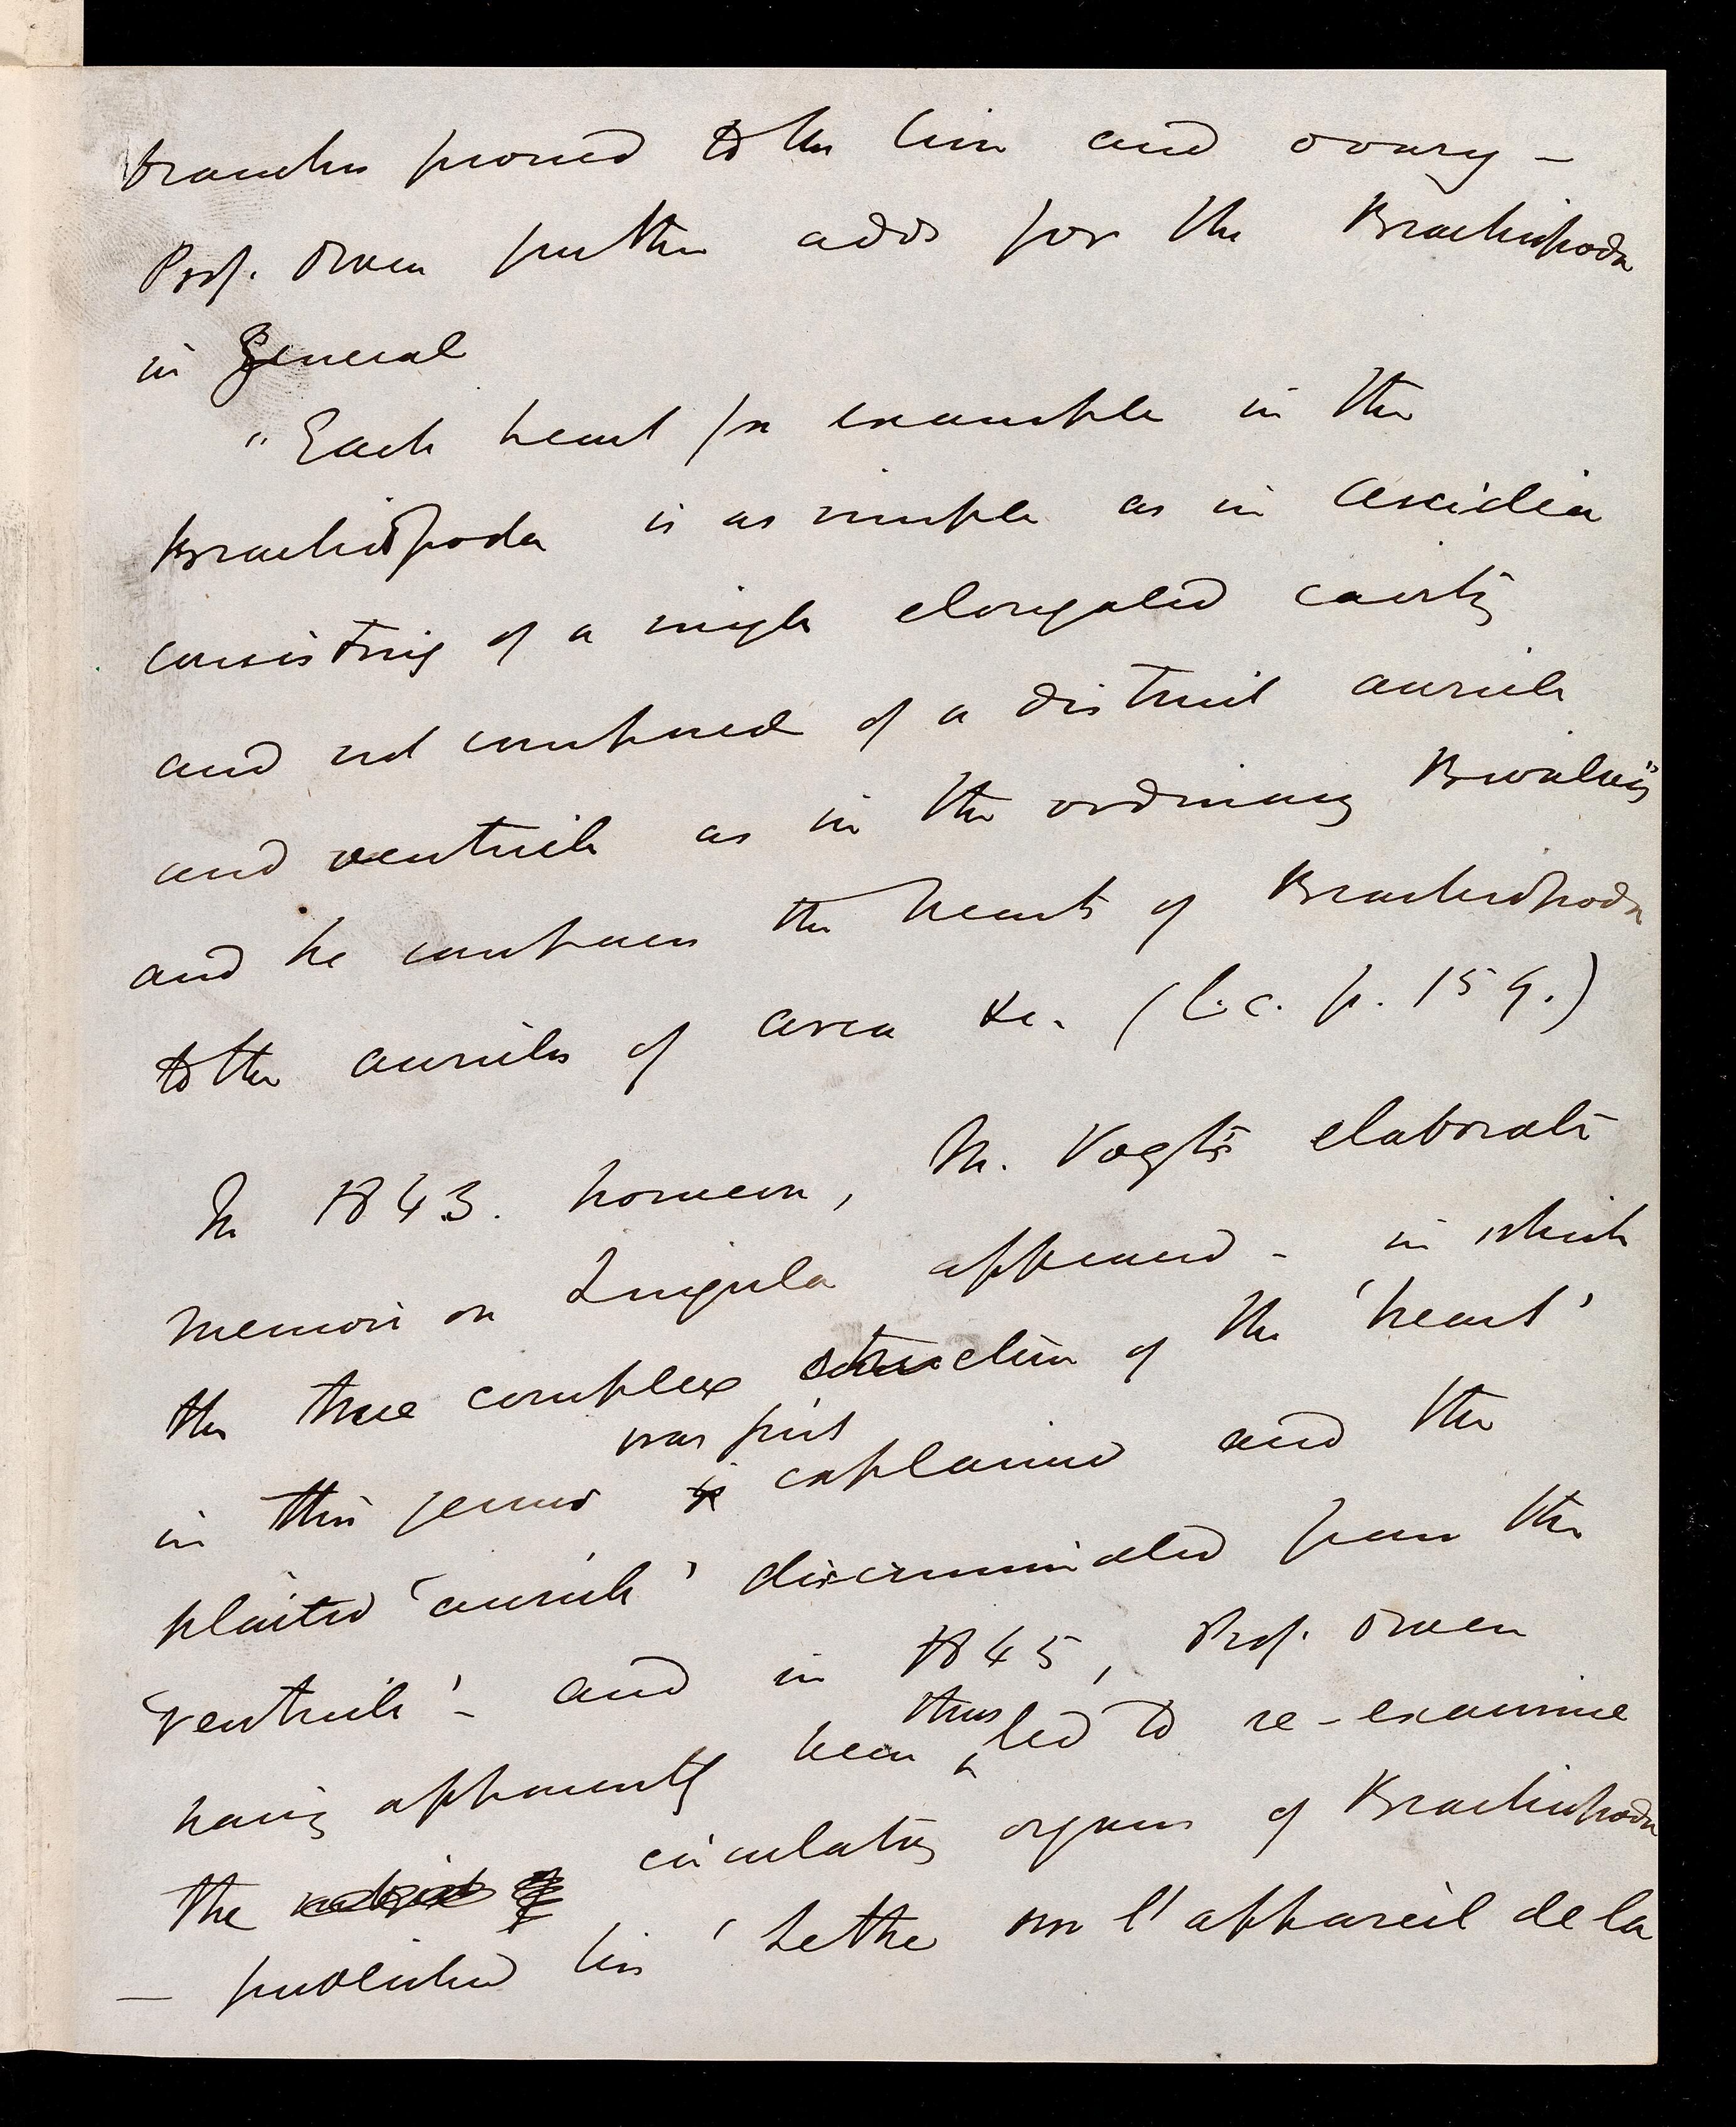 branches proceed to the liver and ovary –
Prof. Owen further adds for the Brachiopoda
in General
"Each heart for example in the
Brachiopoda is as simple as in Ascidia
consisting of a single elongated cavity
and not composed of a distinct auricle
and ventricle as in the ordinary Bivalves"
and he compares the hearts of Brachiopoda
to the auricles of Arca &c. (l.c. p. 159.)
In 1843. however, M. Vogt's elaborate
memoir on Lingula appeared – in which
the true complex structure of the 'heart'
was first
in this genus is explained and the
plaited 'auricle' discriminated from the
'ventricle' – and in 1845, Prof. Owen
thus
having apparently been led to re-examine
the circulatory organs of Brachiopoda
– published his 'Lettre sur l'appareil de la